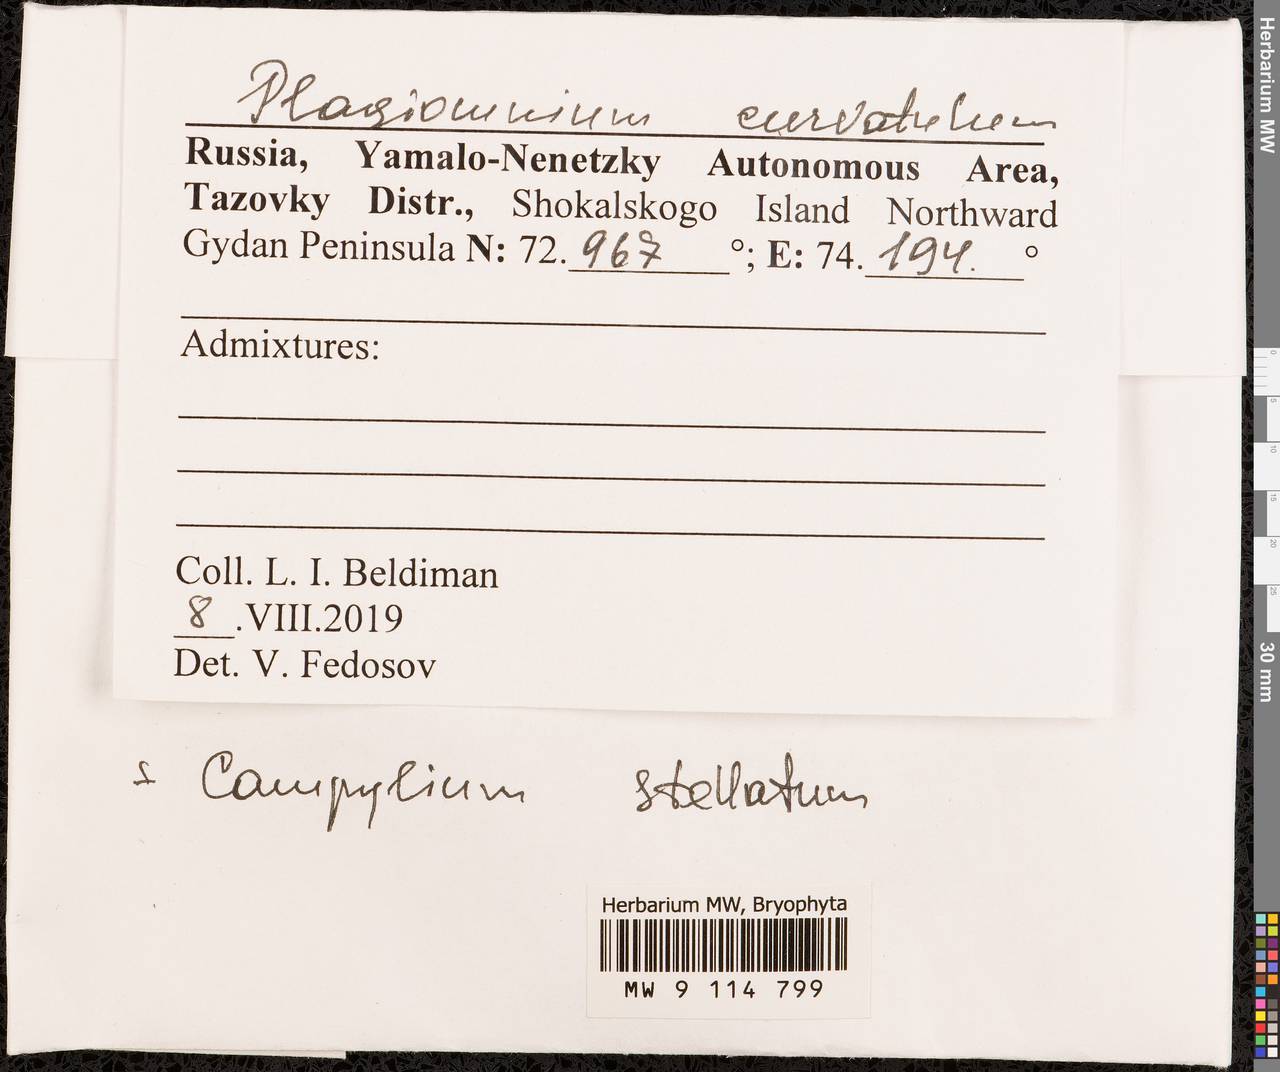 Plagiomnium curvatulum
Russia, Yamalo-Nenetzky Autonomous Area,
Tazovky Distr., Shokalskogo Island Northward
Gydan Peninsula N: 72.967°; E: 74.194.°
Admixtures:
Coll. L. I. Beldiman
8.VIII.2019
Det. V. Fedosov
s Campylium stellatum
Herbarium MW, Bryophyta
MW 9 114 799
Herbarium MW
0
5
10
15
20
25
30 mm